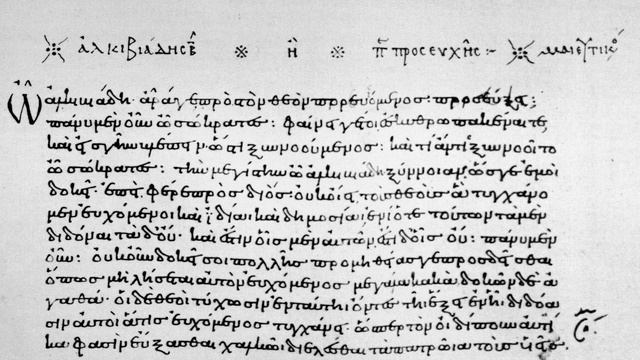 ἀλκιβιάδης β̄ ※ ἢ ※ π̄ προσευχῆς :~ ※ μαιευτικός
Ὦ ἀλκιβιάδη· ἆρά γε πρὸς τὸν θεὸν προσευξόμενος πορεύει;
πάνυ μὲν οὖν ὦ σώκρατες: φαίνει γέ τοι ἐσκυθρωπακέναι τε,
καὶ εἰς γῆν βλέπειν ὥς τι ξυννοούμενος: καὶ τί ἄν τις ξυννοοῖτο
ὦ σώκρατες: τὴν μεγίστην ὦ ἀλκιβιάδη ξύννοιαν, ὥς γε ἐμοὶ
δοκεῖ· ἐπεὶ φέρε πρὸς διός· οὐκ οἴει τοὺς θεοὺς ἃ τυγχάνο
μεν εὐχόμενοι καὶ ἰδίαι καὶ δημοσίαι ἐνίοτε τούτων τὰ μὲν
διδόναι τὰ δ' οὔ· καὶ ἔστιν οἷς μὲν αὐτῶν, ἔστι δ' οἷς οὔ: πάνυ μὲν
οὖν: οὐκοῦν δοκεῖ σοι πολλῆς προμηθείας γε προσδεῖσθαι
ὅπως μὴ λήσεται αὑτὸν εὐχόμενος μεγάλα κακὰ δοκῶν δὲ ἀ
γαθά· οἱ δὲ θεοὶ τύχωσιν ἐν ταύτηι ὄντες τῆι ἕξει ἐν ἧι διδόα
σιν αὐτοὶ ἅ τις εὐχόμενος τυγχάνει· ὥσπερ τὸν οἰδίπουν αὐτί
κα φασὶν εὔξασθαι χαλκῶι διελέσθαι τὰ πατρῶια τοὺς ὑεῖς·